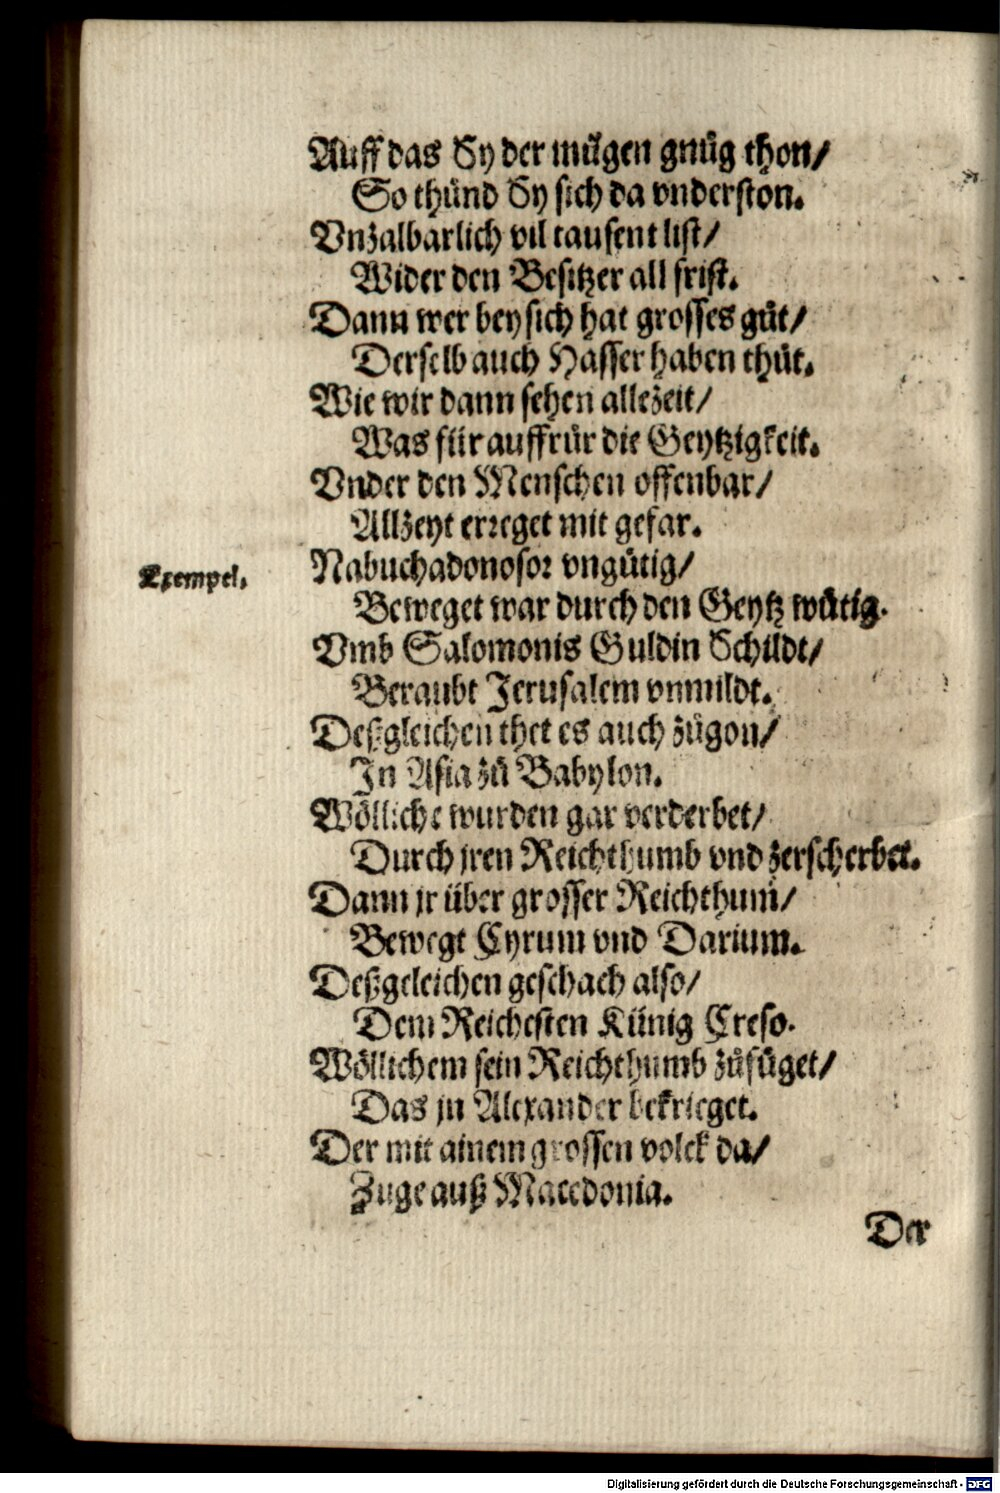 Auff das Sy der mügen gnůg thon/
So thůnd Sy sich da vnderston.
Vnzalbarlich vil tausent list/
Wider den Besitzer all frist.
Dann wer bey sich hat grosses gůt/
Derselb auch Hasser haben thůt.
Wie wir dann sehen allezeit/
Was für auffrůr die Geytzigkeit.
Vnder den Menschen offenbar/
Allzeyt erreget mit gefar.
Exempel.
Nabuchadonosor vngütig/
Beweget war durch den Geytz wůtig.
Vmb Salomonis Guldin Schildt/
Beraubt Jerusalem vnmildt.
Deßgleichen thet es auch zůgon/
In Asia zů Babylon.
Wölliche wurden gar verderbet/
Durch jren Reichthumb vnd zerscherbet.
Dann jr über grosser Reichthum/
Bewegt Cyrum vnd Darium.
Deßgeleichen geschach also/
Dem Reichesten Künig Creso.
Wöllichem sein Reichthumb zůfüget/
Das jn Alexander bekrieget.
Der mit ainem grossen volck da/
Zuge auß Macedonia.
Der
Digitalisierung gefördert durch die Deutsche Forschungsgemeinschaft - DFG